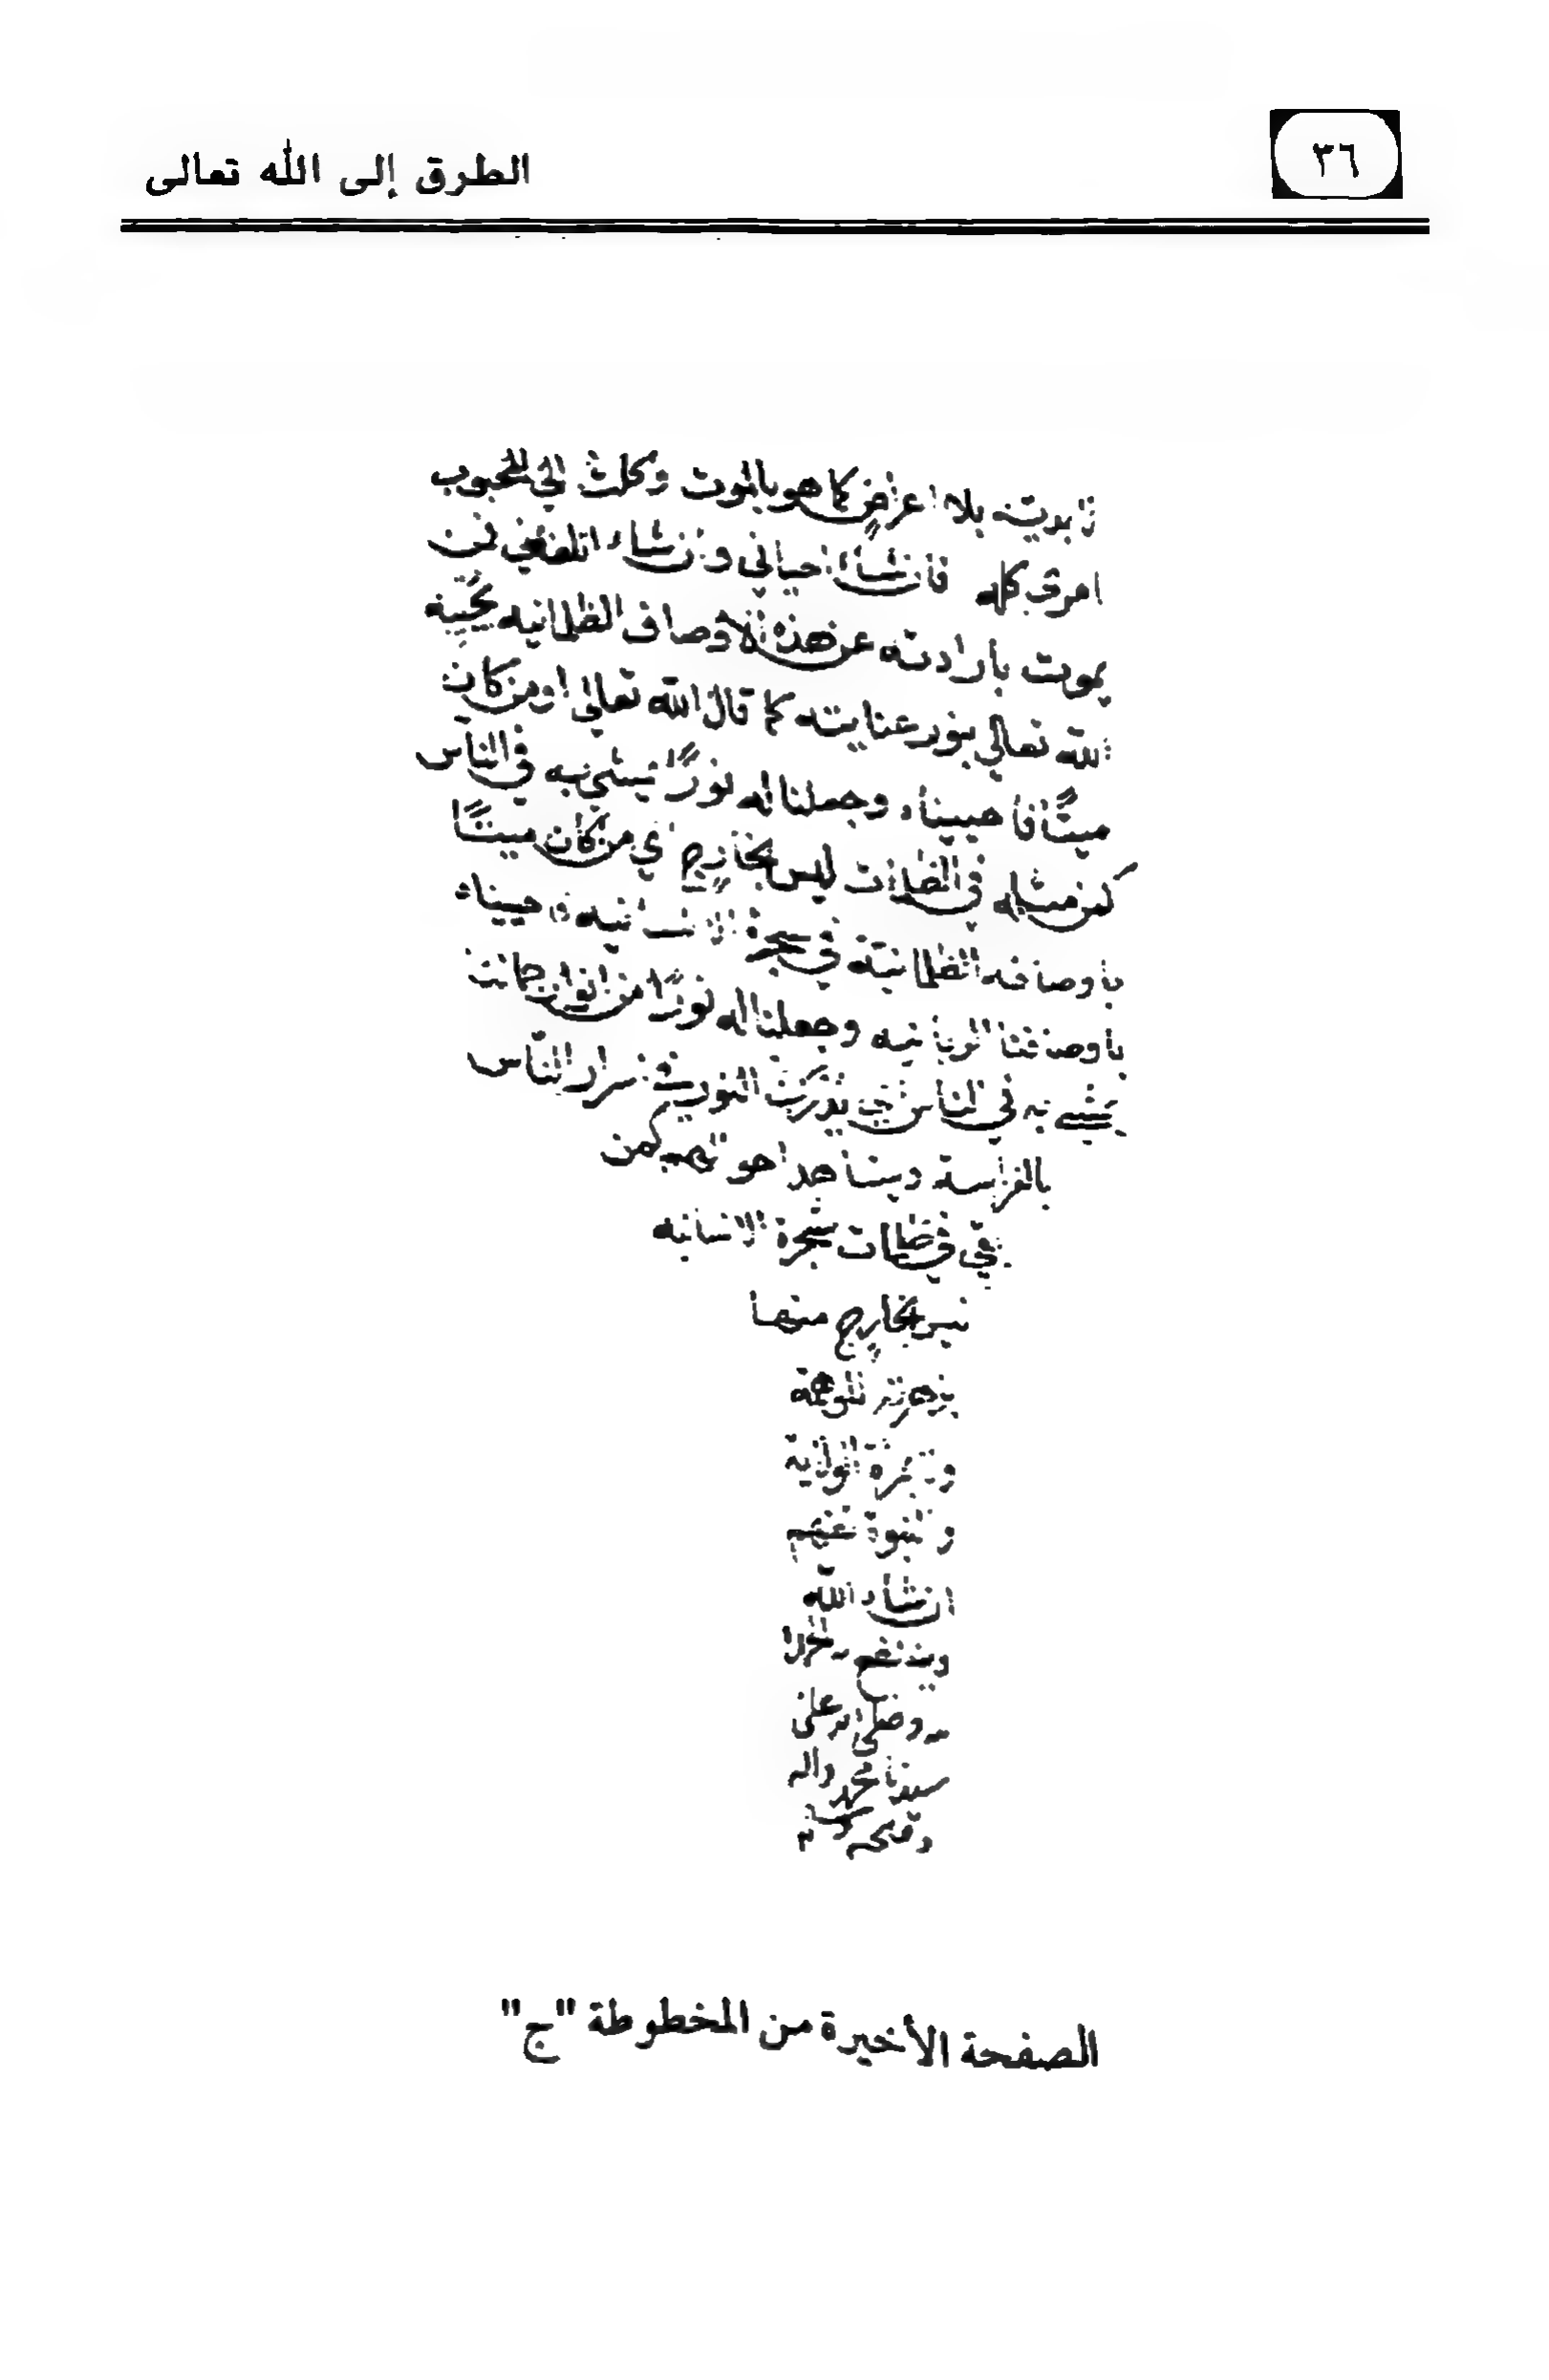 الطرق إلى الله تعالى
٣٦
بلا اعراض كما هو بالموت وكلت الي المحبوب
امري كله فان شاء احياني وان شاء اتلفني فمن
يموت بارادته عن هذه الاوصاف الظلمانيه يحييه
الله تعالي بنور عنايته كما قال الله تعالي اومن كان
ميتًا فاحييناه وجعلنا له نورًا يمشي به في الناس
كمن مثله في الظلمات ليس بخارج اي من كان ميتًا
باوصافه الظلمانية في شجرة الانسانيه فاحييناه
باوصافنا الربانيه وجعلنا له نورًا من انوار جمالنا
يمشي به في الناس النور اسرار الناس
بالفراسة ويشاهد احوالهم كمن
بقي في ظلمات شجرة الانسانيه
ليس بخارج منها
والنبوة
ان شاء الله
وصلى الله على
سيدنا محمد واله
وصحبه وسلم
الصفحة الأخيرة من المخطوطة "ج"